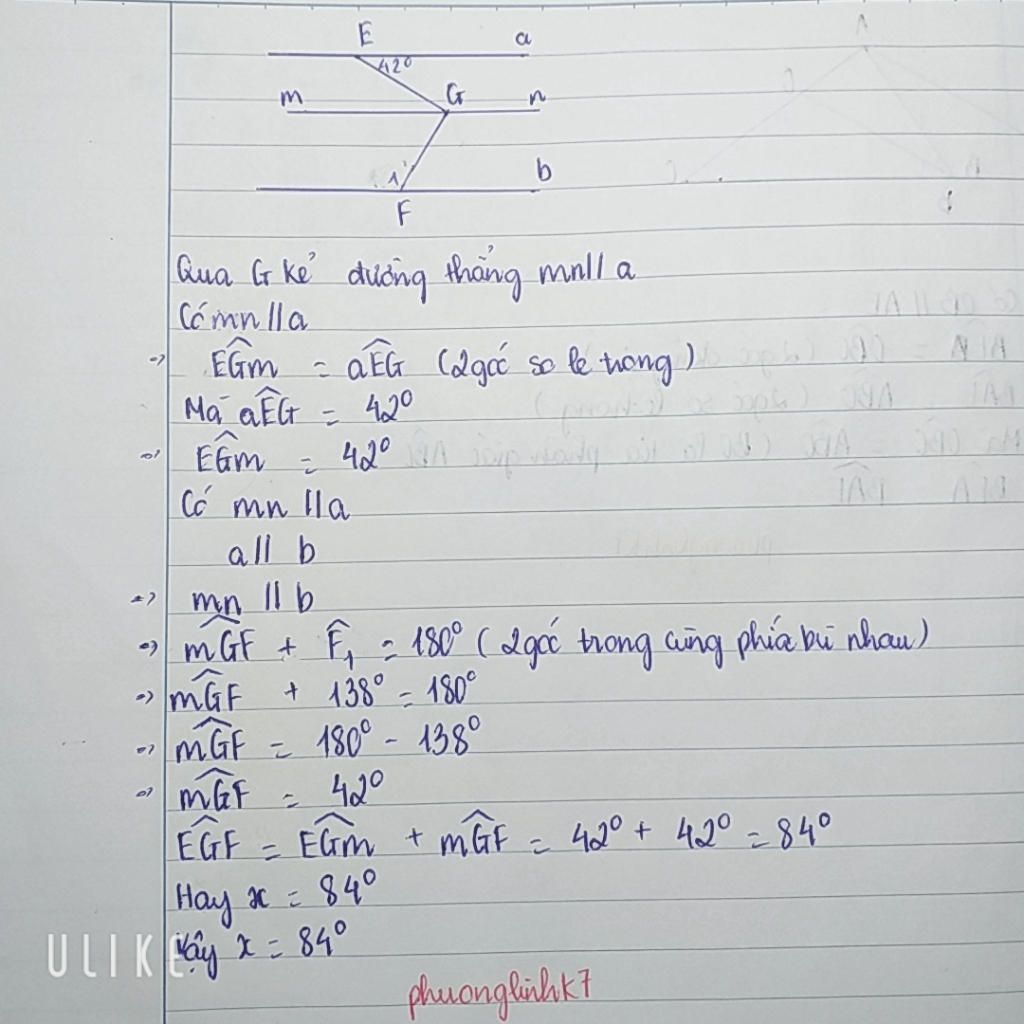 E a
42°
m G n
1
b
F
Qua G kẻ đường thẳng mn // a
Có mn // a
=> EĜm = aÊG (2 góc so le trong)
Mà aÊG = 42°
=> EĜm = 42°
Có mn // a
a // b
=> mn // b
=> mĜF + F̂₁ = 180° (2 góc trong cùng phía bù nhau)
=> mĜF + 138° = 180°
=> mĜF = 180° - 138°
=> mĜF = 42°
EĜF = EĜm + mĜF = 42° + 42° = 84°
Hay x = 84°
Vậy x = 84°
ULIKE
phuonglinhk7